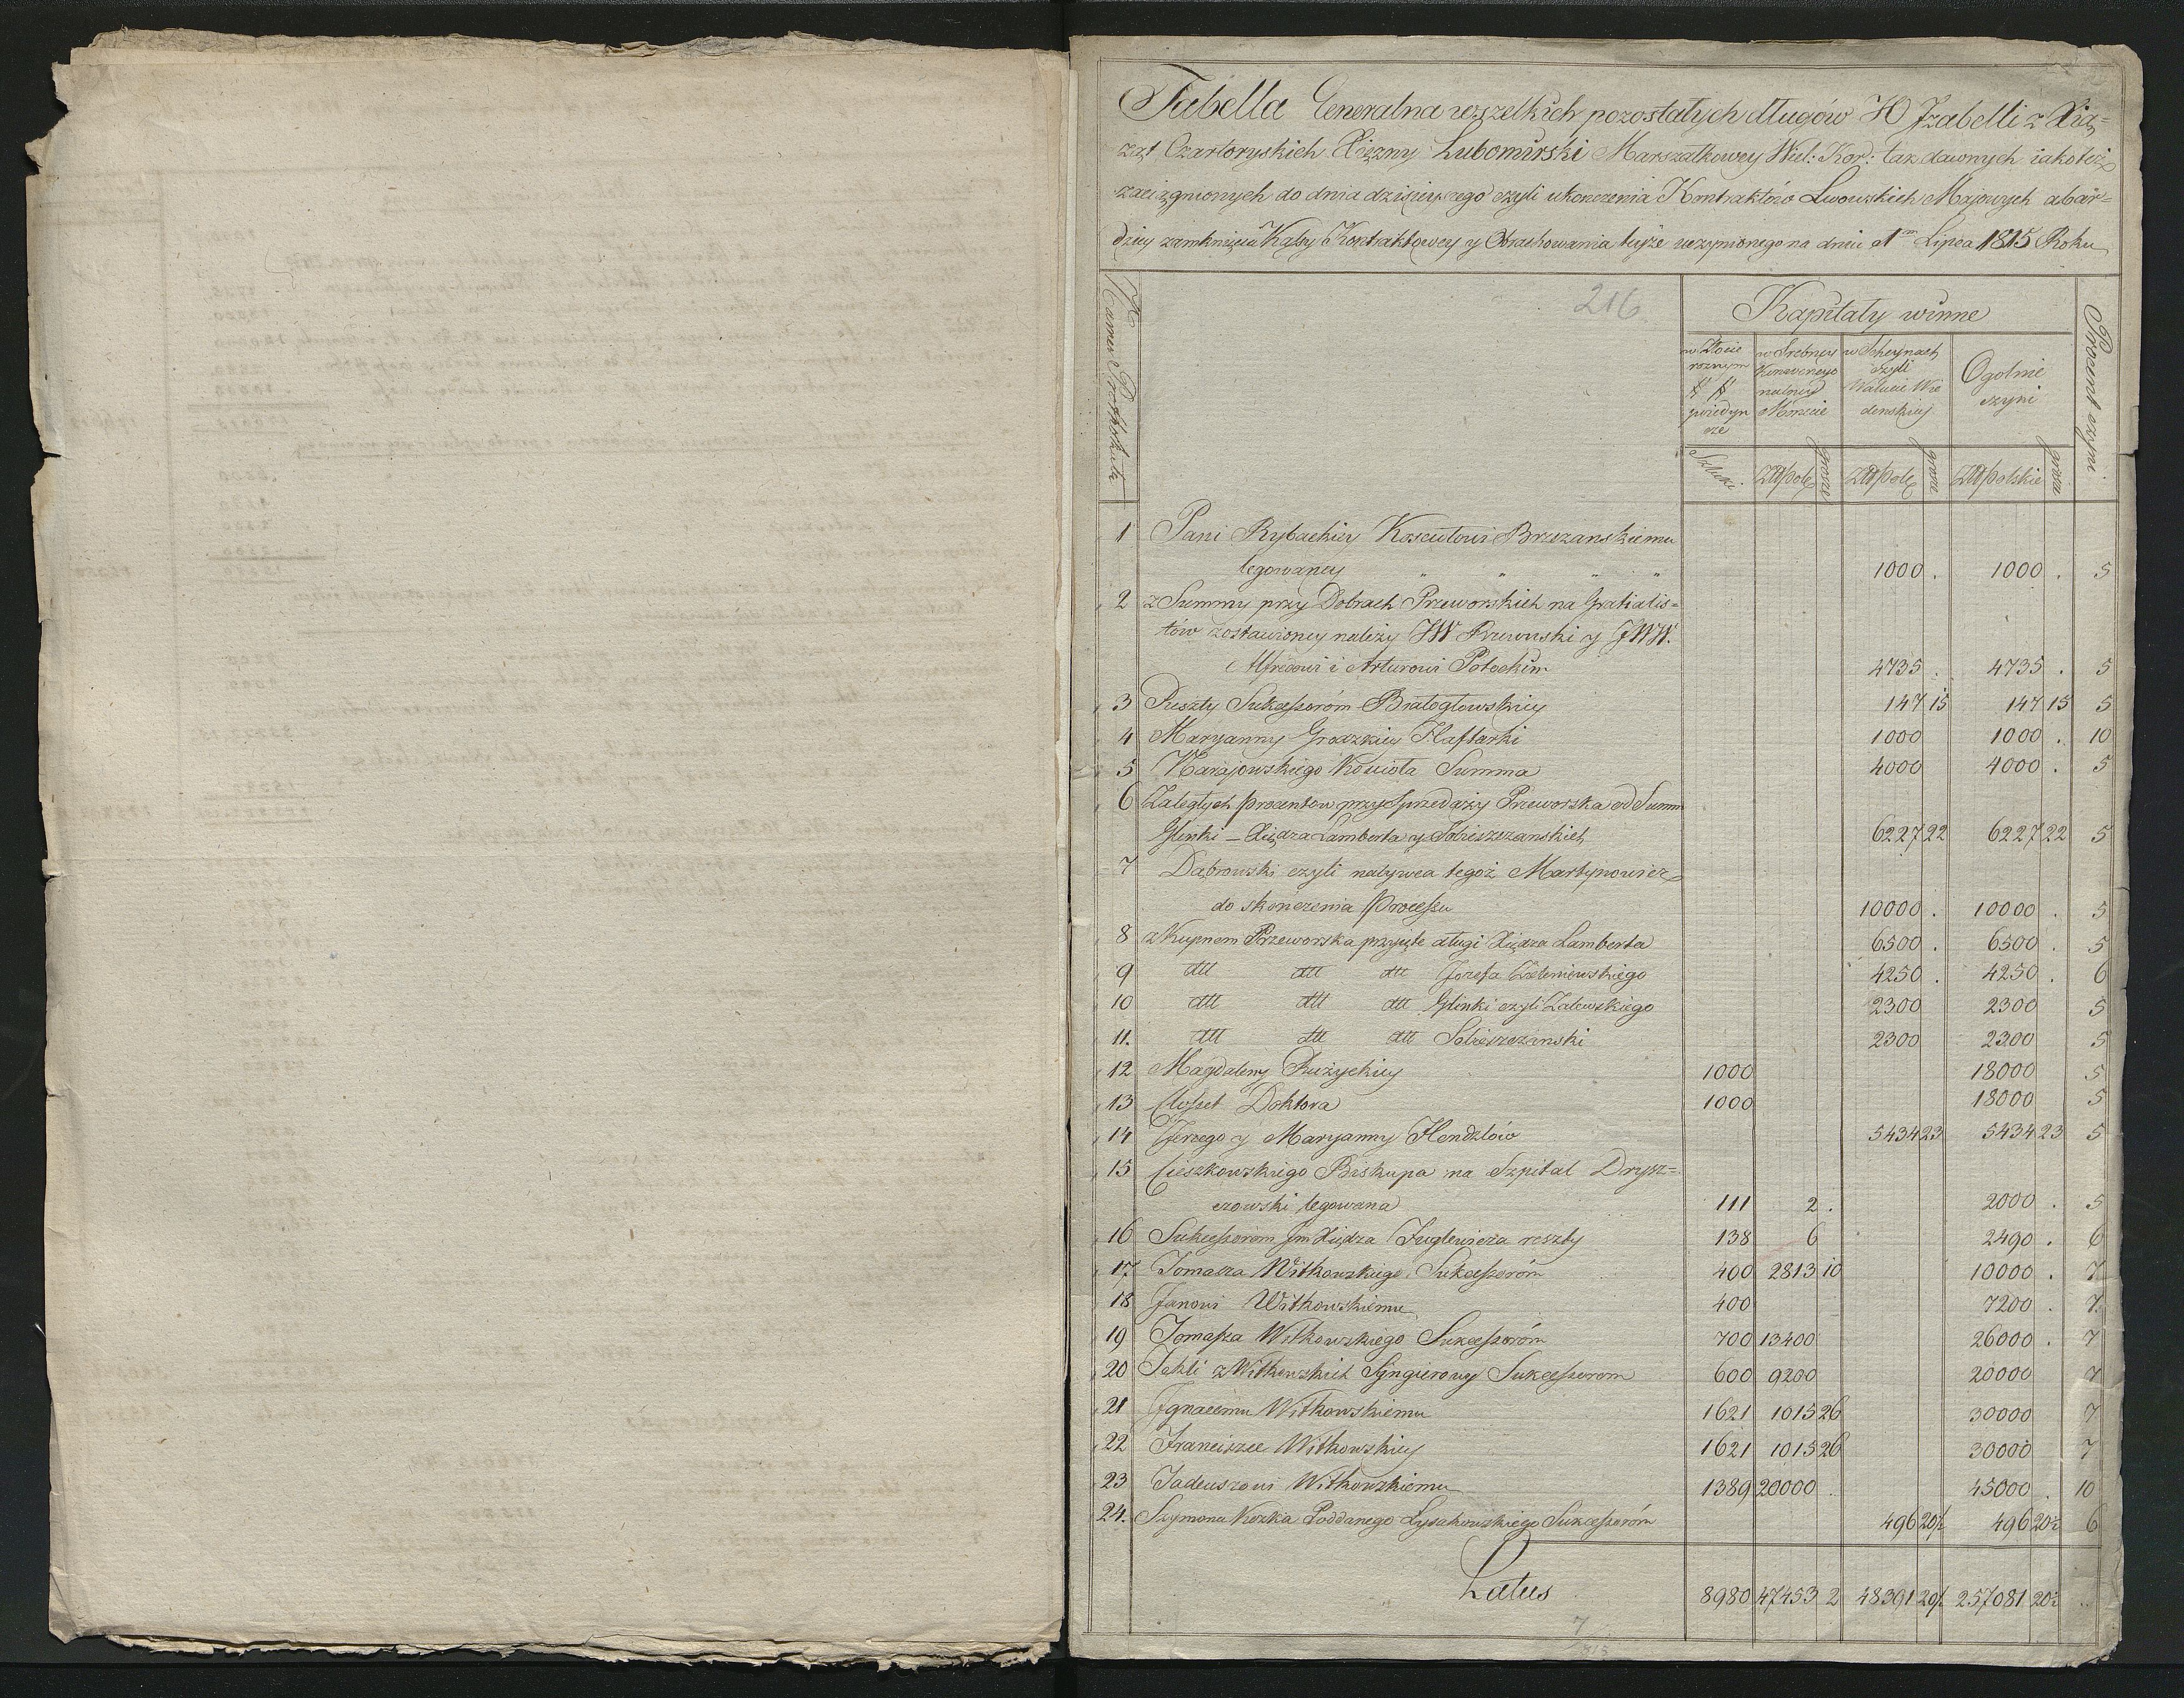 Tabella Generalna wszelkich pozostałych długów JO Jzabelli z Xią=
żąt Czartoryskich Xiężny Lubomirski Marszałkowey Wiel: Kor: tak dawnych iakoteż
zaciągnionych do dnia dzisieyszego czyli ukończenia Kontraktów Lwowskich Majowych abar=
dziey zamknięcia Kassy Kontraktowey y Obrachowania teyże uczynionego na dniu 1m Lipca 1815 Roku
216
Numer Prothokułu
Kapitały winne
Procent czyni
w Złocie
roznym
## ##
poiedyn
cze
w Srebrney
Konwencyo
nalney
Monecie
w Scheynach
czyli
Walucie Wie
denskiey
Ogolnie
czyni
Sztuki
Złł pol
grosze
Złł pol
grosze
Złł polskie
grosze
1 Pani Rybackiey Kosciołowi Brzezanskiemu
legowaney " " " " 1000 . 1000 . 5
2 z Summy przy Dobrach Przeworskich na Gratialis=
tów zostawioney należy JW Rzewuski y JWW.
Alfredowi i Arturowi Potockim 4735 . 4735 . 5
3 Reszty Sukcessoróm Białogłowskiey 147 15 147 15 5
4 Maryanny Grodzkiey Haftarki 1000 1000 . 10
5 Narajowskiego Kościoła Summa 4000 4000 . 5
6 Zaległych procentow przy Sprzedaży Przeworska od Summ
Glinki _ Xiędza Lamberta y Sobieszczanskich 6227 22 6227 22 5
7 Dąbrowski czyli nabywca tegoż Martynowicz
do skończenia Processu 10000 . 10000 . 5
8 z Kupnem Przeworska przyięte długi Xiędza Lamberta 6500 . 6500 . 5
9 dtt dtt dtt Jozefa Zieleniewskiego 4250 . 4250 . 6
10 dtt dtt dtt Glinki czyli Zalewskiego 2300 2300 5
11. dtt dtt dtt Sobieszczanski 2300 2300 5
12 Magdaleny Rużyckiey 1000 18000 5
13 Closset Doktora 1000 18000 5
14 Jerzego y Maryanny Hendzlów 5434 23 5434 23 5
15 Cieszkowskiego Biskupa na Szpital Drysz=
czowski legowana 111 2 . 2000 . 5
16 Sukcessorom Jm Xiędza Fuglewicza reszty 138 6 2490 . 6
17 Tomasza Witkowskiego Sukcessoróm 400 2813 10 10000 . 7
18 Janowi Witkowskiemu 400 7200 . 7
19 Tomasza Witkowskiego Sukcessoróm 700 13400 26000 . 7
20 Tekli z Witkowskich Syngierowy Sukcessorom 600 9200 20000 7
21 Jgnacemu Witkowskiemu 1621 1015 26 30000 7
22 Franciszce Witkowskiey 1621 1015 26 30000 7
23 Tadeuszowi Witkowskiemu 1389 20000 . 45000 . 10
24. Szymona Kozka Poddanego Łysakowskiego Sukcessoróm 496 20½ 496 20½ 6
Latus 8980 47453 2 48391 20½ 257081 20½ ..